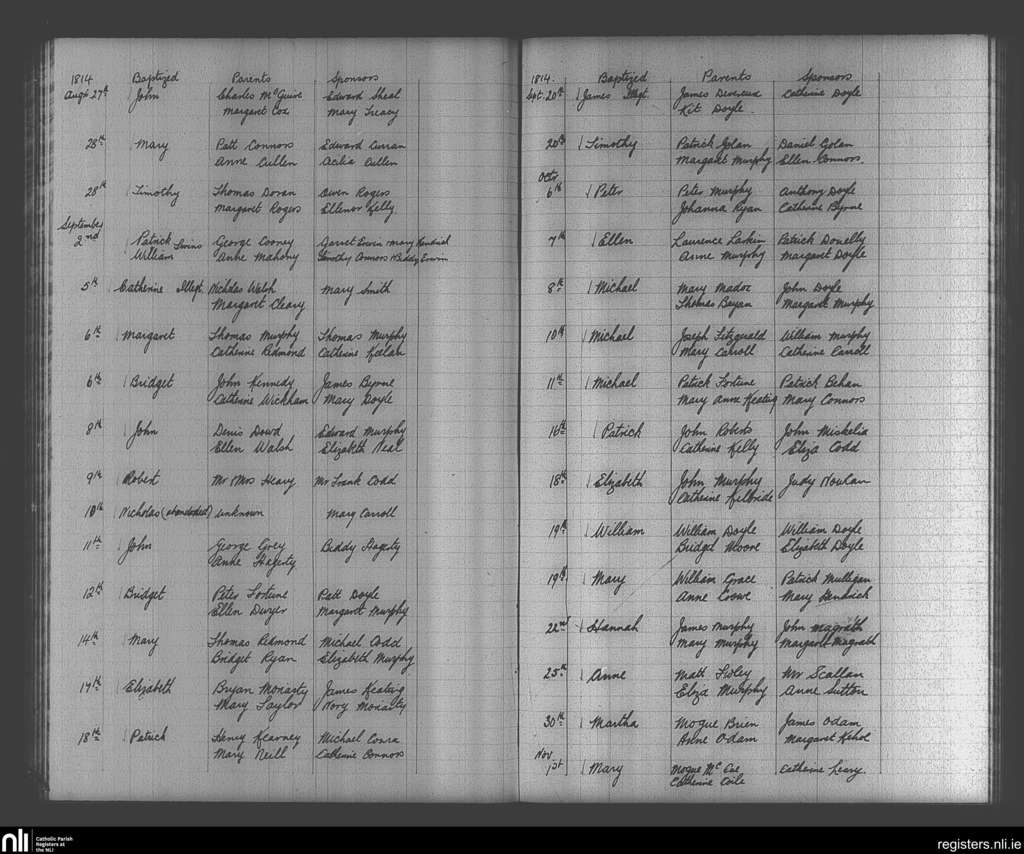 1814 Baptized Parents Sponsors
Augt 27th John Charles McGuire Edward Sheal
Margaret Cox Mary Treacy
28th Mary Patt Connors Edward Curran
Anne Cullen Acilia Cullen
28th Timothy Thomas Doran Owen Rogers
Margaret Rogers Ellenor Kelly.
September
2nd Patrick Twins George Cooney Garret Erwin Mary Kendrick
William Anne Mahony Timothy Connors & Biddy Erwin
5th Catherine Illegt. Nicholas Walsh Mary Smith
Margaret Cleary
6th Margaret Thomas Murphy Thomas Murphy
Catherine Redmond Catherine Keelan
6th Bridget John Kennedy James Byrne
Catherine Wickham Mary Doyle
8th John Denis Dowd Edward Murphy
Ellen Walsh Elizabeth Neal
9th Robert Mr & Mrs Heary Mr Frank Codd
10th Nicholas (abandoded) unknown Mary Carroll
11th John George Grey Biddy Hagerty
Anne Hagerty
12th Bridget Peter Fortune Patt Doyle
Ellen Dwyer Margaret Murphy
14th Mary Thomas Redmond Michael Codd
Bridget Ryan Elizabeth Murphy
17th Elizabeth Bryan Monarty James Keating
Mary Taylor Nory Monarty
18th Patrick Henry Kearney Michael Conra
Mary Neill Catherine Connors
1814. Baptized Parents Sponsors
Sept. 20th James Illegt. James Devereux Catherine Doyle
Kit Doyle.
20th Timothy Patrick Golan Daniel Golan
Margaret Murphy Ellen Connors.
Octr
6th Peter Peter Murphy Anthony Doyle
Johanna Ryan Catherine Byrne
7th Ellen Laurence Larkin Patrick Donally
Anne Murphy Margaret Doyle
8th Michael Mary Madox John Doyle
Thomas Bryan Margaret Murphy
10th Michael Joseph Fitzgerald William Murphy
Mary Carroll Catherine Carroll
11th Michael Patrick Fortune Patrick Behan
Mary Anne Keating Mary Connors
16th Patrick John Roberts John Miskelia
Catherine Kelly Eliza Codd
18th Elizabeth John Murphy Judy Nowlan
Catherine Kilbride
19th William William Doyle William Doyle
Bridget Moore Elizabeth Doyle
19th Mary William Grace Patrick Mulligan
Anne Crowe Mary Kendrick
22nd Hannah James Murphy John Magrath
Mary Murphy Margaret Magrath
25th Anne Matt Foley Mr Scallan
Eliza Murphy Anne Sutton
30th Martha Mogue Brien James Odam
Anne Odam Margaret Kehoe
Nov
1st Mary Mogue McCoe Catherine Leary.
Catherine Coile
nli Catholic Parish
Registers at
the NLI
registers.nli.ie